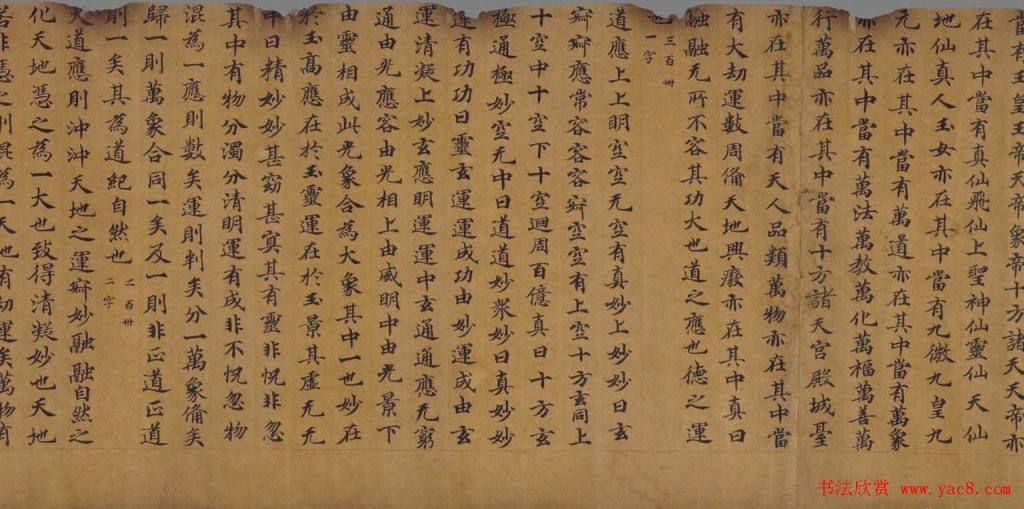 當有玉皇玉帝天帝帝象帝十方諸天天帝亦
在其中當有真仙飛仙上聖神仙靈仙天仙
地仙真人玉女亦在其中當有九微九皇九
元亦在其中當有萬道亦在其中當有萬象
亦在其中當有萬法萬教萬化萬福萬善萬
行萬品亦在其中當有十方諸天宮殿城臺
亦在其中當有天人品類萬物亦在其中當
有大劫運數周俻天地興癈亦在其中真曰
融融无所不容其功大也道之應也德之運
也 三百卌一字
道應上上明空空无空有真妙上妙妙曰玄
辯辯應常容容容辯空空有上空十方玄同上
十空中十空下十空迴周百億真曰十方玄
極通極妙空无中曰道道妙衆妙曰真妙妙
逢有功功曰靈玄運運成功由妙妙運成由玄
運清凝上妙玄應明運運中玄通通應无窮
通由光應容由光相上由威明中由光景下
由靈相成此光象合為大象其中一也妙在
於玉髙應在於玉靈運在於玉景其虛无无
中曰精妙妙甚窈甚㝠其有靈非怳非忽
其中有物分濁分清明運有成非不怳忽物
混為一應則數矣運則判矣分一萬象俻矣
歸一則萬象合同一矣及一則非㱏道㱏道
則一矣其為道紀自然也 二百卌二字
大道應則沖沖天地之運辯妙融融自然之
化天地憑之為一大也致得清凝妙也天地
若非憑之則混為一天也有劫運矣萬物有
书法欣赏 www.yac8.com